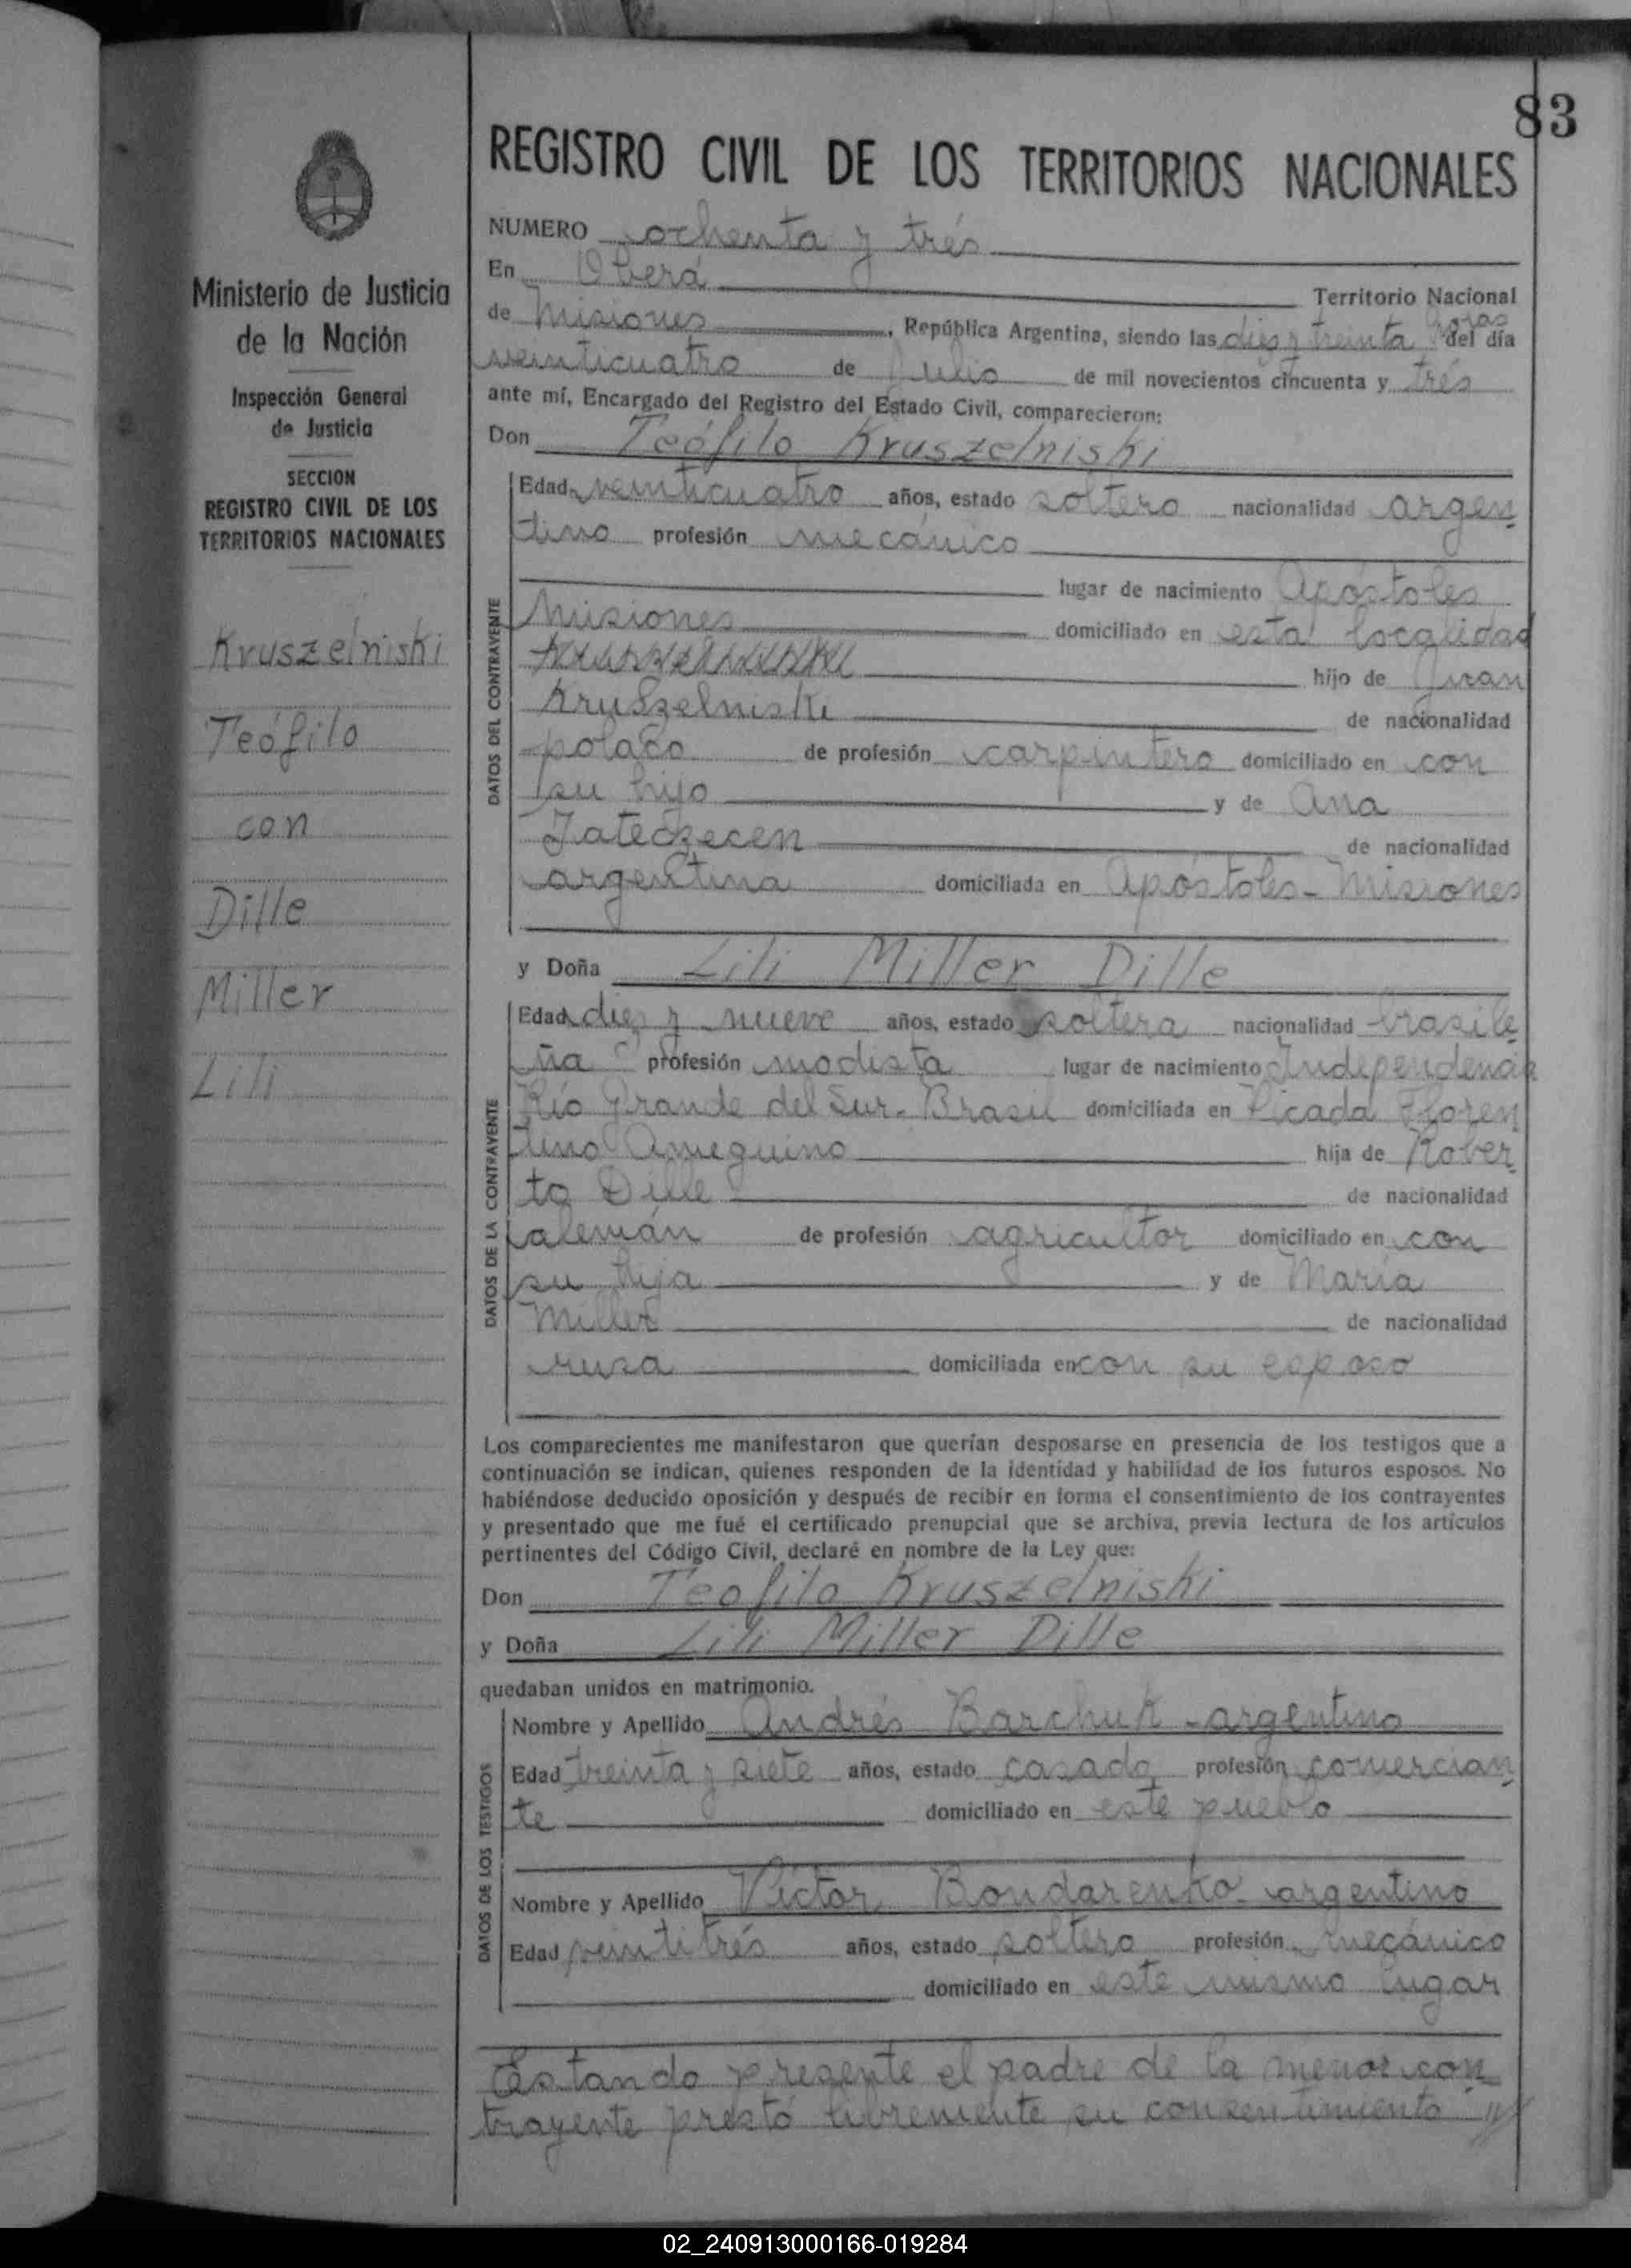 83
REGISTRO CIVIL DE LOS TERRITORIOS NACIONALES
Ministerio de Justicia
de la Nación
Inspección General
de Justicia
SECCION
REGISTRO CIVIL DE LOS
TERRITORIOS NACIONALES
Kruszelniski
Teófilo
con
Dille
Miller
Lili
NUMERO ochenta y trés
En Oberá Territorio Nacional
de Misiones, República Argentina, siendo las diez y treinta horas del día
veinticuatro de Julio de mil novecientos cincuenta y trés
ante mí, Encargado del Registro del Estado Civil, comparecieron:
Don Teófilo Kruszelniski
DATOS DEL CONTRAYENTE
Edad veinticuatro años, estado soltero nacionalidad argen
tino profesión mecánico
lugar de nacimiento Apóstoles
Misiones domiciliado en esta localidad
hijo de Juan
Kruszelniski de nacionalidad
polaco de profesión carpintero domiciliado en con
su hijo y de Ana
de nacionalidad
argentina domiciliada en Apóstoles - Misiones
y Doña Lili Miller Dille
DATOS DE LA CONTRAYENTE
Edad diez y nueve años, estado soltera nacionalidad brasile
ña profesión modista lugar de nacimiento Independencia
Río Grande del Sur. Brasil domiciliada en Picada Floren
tino Ameguino hija de Rober
to Dille de nacionalidad
alemán de profesión agricultor domiciliado en con
su hija y de María
Miller de nacionalidad
rusa domiciliada en con su esposo
Los comparecientes me manifestaron que querían desposarse en presencia de los testigos que a
continuación se indican, quienes responden de la identidad y habilidad de los futuros esposos. No
habiéndose deducido oposición y después de recibir en forma el consentimiento de los contrayentes
y presentado que me fué el certificado prenupcial que se archiva, previa lectura de los artículos
pertinentes del Código Civil, declaré en nombre de la Ley que:
Don Teofilo Kruszelniski
y Doña Lili Miller Dille
quedaban unidos en matrimonio.
DATOS DE LOS TESTIGOS
Nombre y Apellido Andrés Barchuk - argentino
Edad treinta y siete años, estado casado profesión comercian
te domiciliado en este pueblo
Nombre y Apellido Víctor Bondarenko - argentino
Edad veintitrés años, estado soltero profesión mecánico
domiciliado en este mismo lugar
Estando presente el padre de la menor con
trayente prestó libremente su consentimiento
02_240913000166-019284